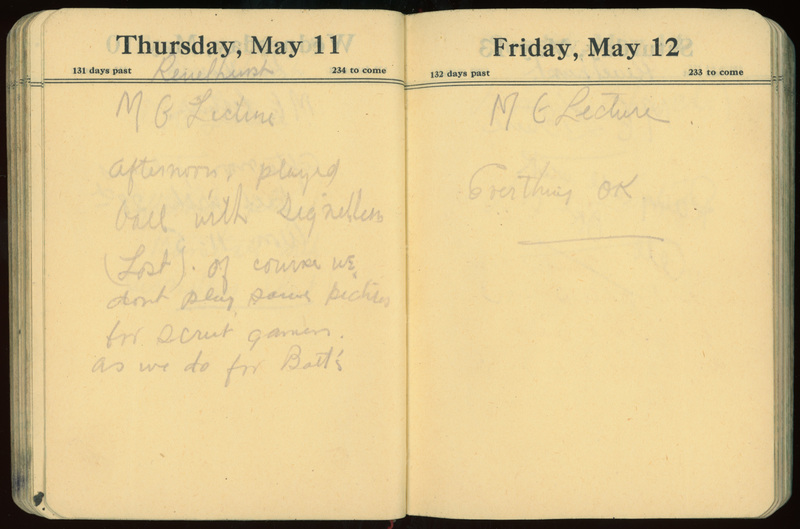 Thursday, May 11
131 days past
234 to come
M G Lecture
afternoon, played
ball with
(Lost). Of course we
dont play same
for scrub games.
as we do for Batt's
Friday, May 12
132 days past
233 to come
M G Lecture
Everthing OK